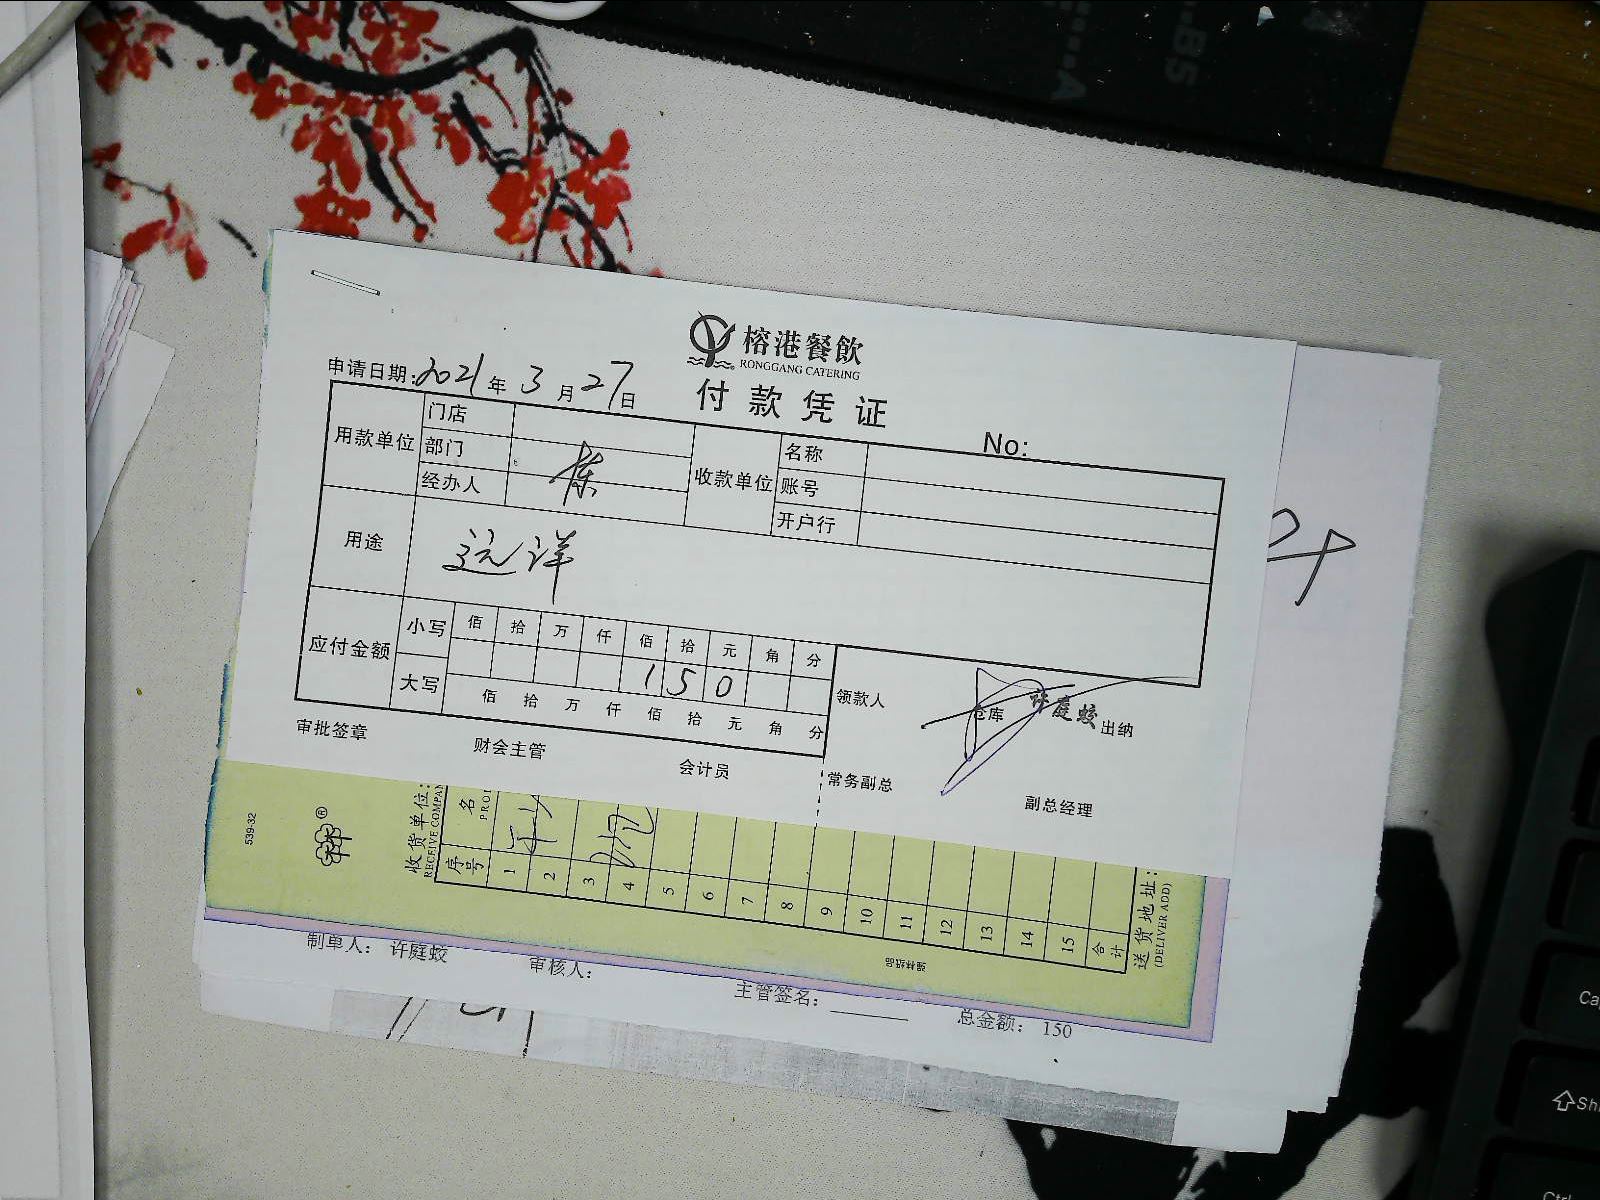 B5
A
榕港餐飲
RONGGANG CATERING
付款凭证
申请日期:2021年3月27日
No:
用款单位
门店
部门
经办人 栋
收款单位
名称
账号
开户行
用途 远洋
应付金额
小写 佰 拾 万 仟 佰 拾 元 角 分
1 5 0
大写 佰 拾 万 仟 佰 拾 元 角 分
领款人
仓库 许庭蛟 出纳
审批签章 财会主管 会计员 常务副总 副总经理
539-32
®
收货单位:
RECEIVE COMPAN
序号
名
1 2 3 4 5 6 7 8 9 10 11 12 13 14 15 合计
送货地址:
(DELIVER ADD)
制单人: 许庭蛟 审核人: 主管签名: 总金额: 150
Ca
Sh
Ctrl